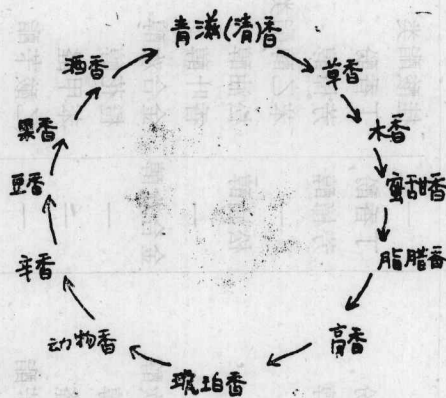 青滋(清)香
草香
木香
蜜甜香
脂腊香
膏香
琥珀香
动物香
辛香
豆香
果香
酒香